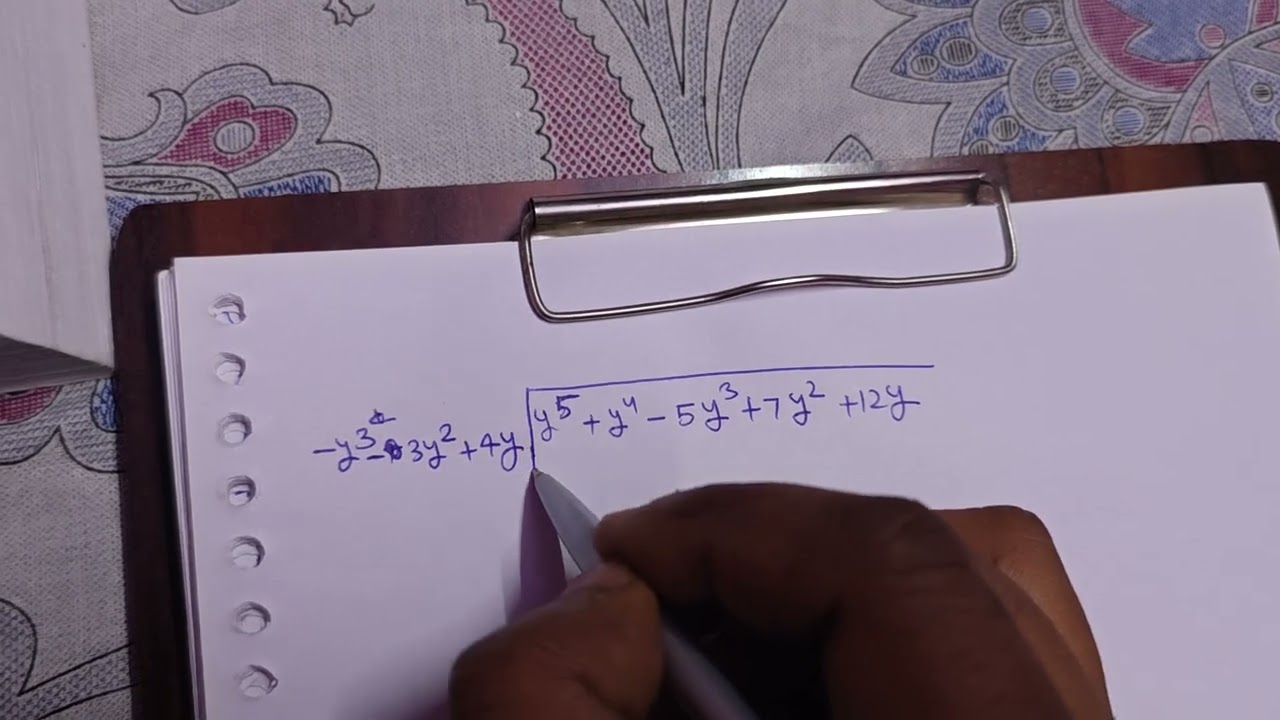 -y³ - 3y² + 4y | y⁵ + y⁴ - 5y³ + 7y² + 12y